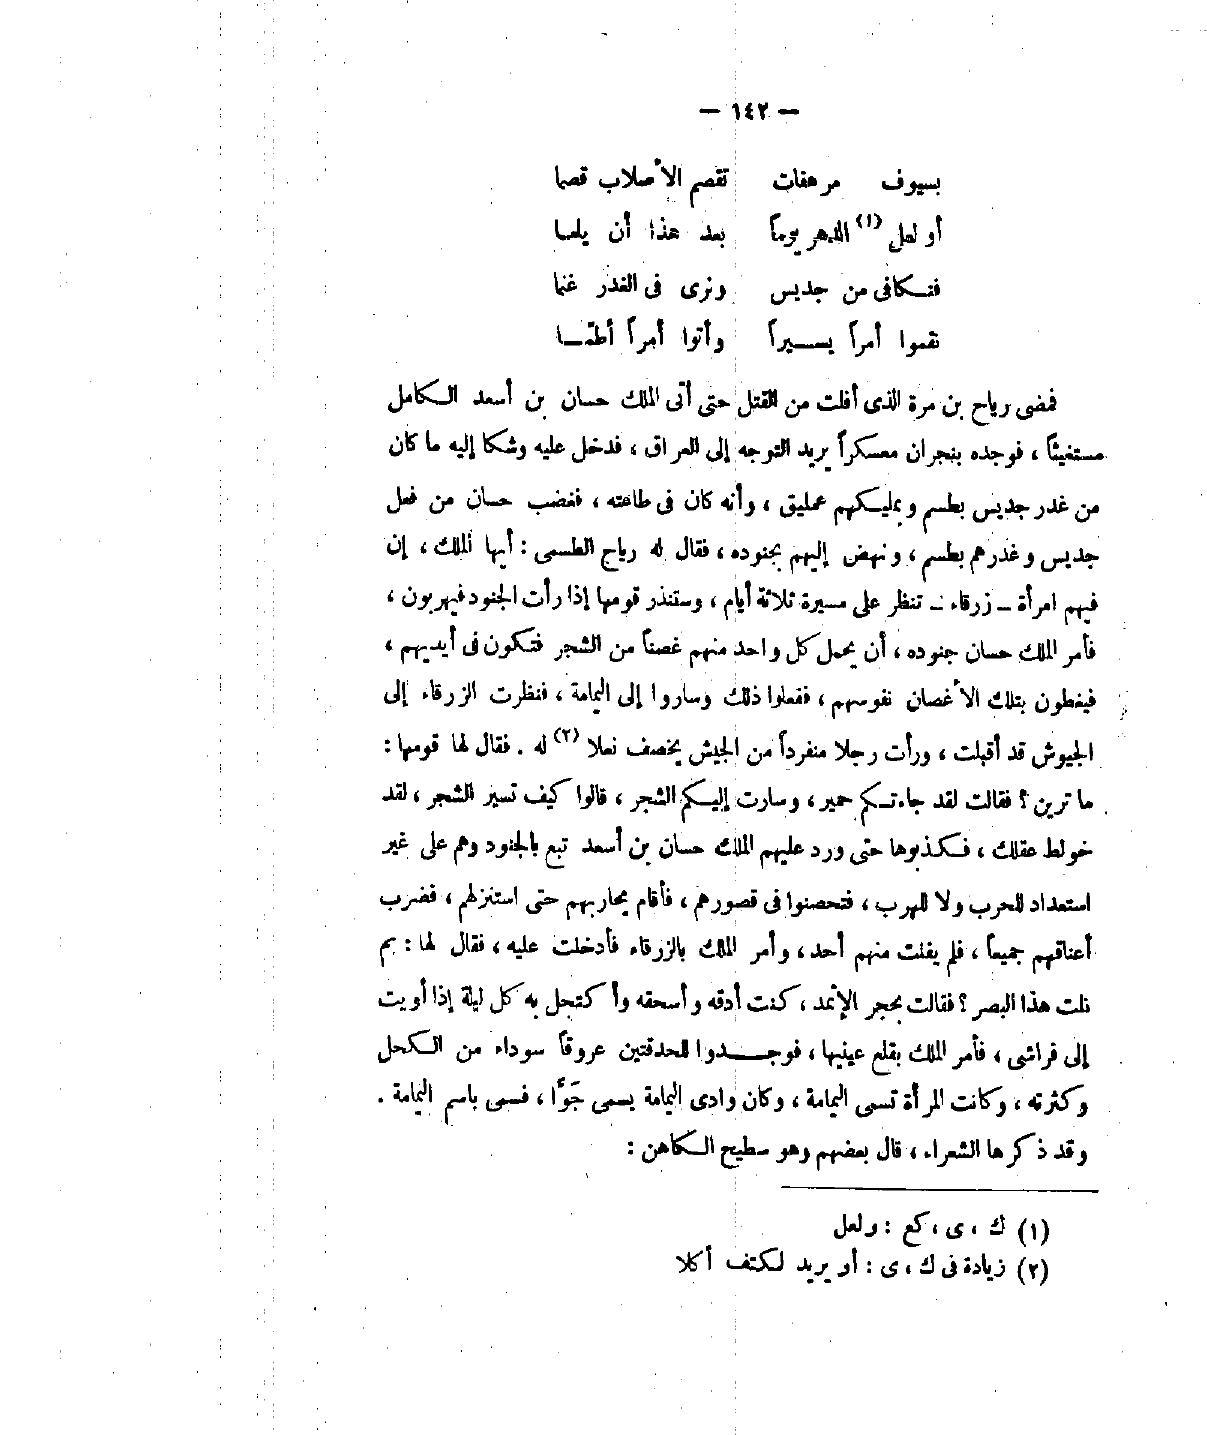 — ١٤٢ —
بسيوف مرهفات تقصم الأصلاب قصما
أو لعل (١) الدهر يوماً بعد هذا أن يلما
فنكافى من جديس ونرى فى الغدر غنما
نقموا أمراً يسيراً وأتوا أمراً أطمّا
فمضى رياح بن مرة الذى أفلت من القتل حتى أتى الملك حسان بن أسعد الكامل
مستغيثاً ، فوجده بنجران معسكراً يريد التوجه إلى العراق ، فدخل عليه وشكا إليه ما كان
من غدر جديس بطسم وبمليكهم عمليق ، وأنه كان فى طاعته ، فغضب حسان من فعل
جديس وغدرهم بطسم ، ونهض إليهم بجنوده ، فقال له رياح الطسمى : أيها الملك ، إن
فيهم امرأة – زرقاء – تنظر على مسيرة ثلاثة أيام ، وستنذر قومها إذا رأت الجنود فيهربون ،
فأمر الملك حسان جنوده ، أن يحمل كل واحد منهم غصناً من الشجر فتكون فى أيديهم ،
فيغطون بتلك الأغصان نفوسهم ، ففعلوا ذلك وساروا إلى اليمامة ، فنظرت الزرقاء إلى
الجيوش قد أقبلت ، ورأت رجلا منفرداً من الجيش يخصف نعلا (٢) له . فقال لها قومها :
ما ترين ؟ فقالت لقد جاءتكم حمير ، وسارت إليكم الشجر ، قالوا كيف تسير الشجر ، لقد
خولط عقلك ، فكذبوها حتى ورد عليهم الملك حسان بن أسعد تبع بالجنود وهم على غير
استعداد للحرب ولا للهرب ، فتحصنوا فى قصورهم ، فأقام يحاربهم حتى استنزلهم ، فضرب
أعناقهم جميعاً ، فلم يفلت منهم أحد ، وأمر الملك بالزرقاء فأدخلت عليه ، فقال لها : بم
نلت هذا البصر ؟ فقالت بحجر الإثمد ، كنت أدقه وأسحقه وأكتحل به كل ليلة إذا أويت
إلى فراشى ، فأمر الملك بقلع عينيها ، فوجدوا للحدقتين عروقاً سوداء من الكحل
وكثرته ، وكانت المرأة تسمى اليمامة ، وكان وادى اليمامة يسمى جَوًّا ، فسمى باسم اليمامة .
وقد ذكرها الشعراء ، قال بعضهم وهو سطيح الكاهن :
(١) ك ، ى ، كع : ولعل
(٢) زيادة فى ك ، ى : أو يريد لكتف أكلا